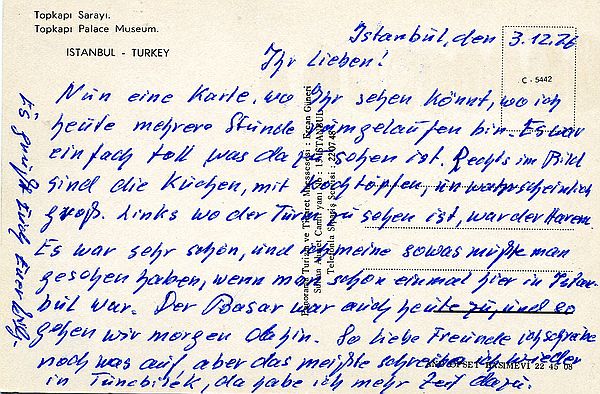 Topkapı Sarayı.
Topkapı Palace Museum.
ISTANBUL - TURKEY
C - 5442
Istanbul, den 3.12.76
Ihr Lieben!
Nun eine Karte, wo Ihr sehen könnt, wo ich
heute mehrere Stunde rumgelaufen bin. Es war
einfach toll was da zu sehen ist. Rechts im Bild
sind die Küchen, mit Kochtöpfen, unwahrscheinlich
groß. Links wo der Turm zu sehen ist, war der Harem.
Es war sehr schön, und ich meine sowas müßte man
gesehen haben, wenn man schon einmal hier in Istan-
bul war. Der Basar war auch heute zu, und so
gehen wir morgen dahin. So liebe Freunde ich schreibe
noch was auf, aber das meißte schreibe ich wieder
in Tuncbilek, da habe ich mehr Zeit dazu.
Es grüßt Euch Euer
Ticaret Müessesesi : Ercan Güneri
Sultan Ahmet Camii yanı No : İSTANBUL
Telefonla Sipariş Servisi : 220748
OFSET BASIMEVİ 22 45 08